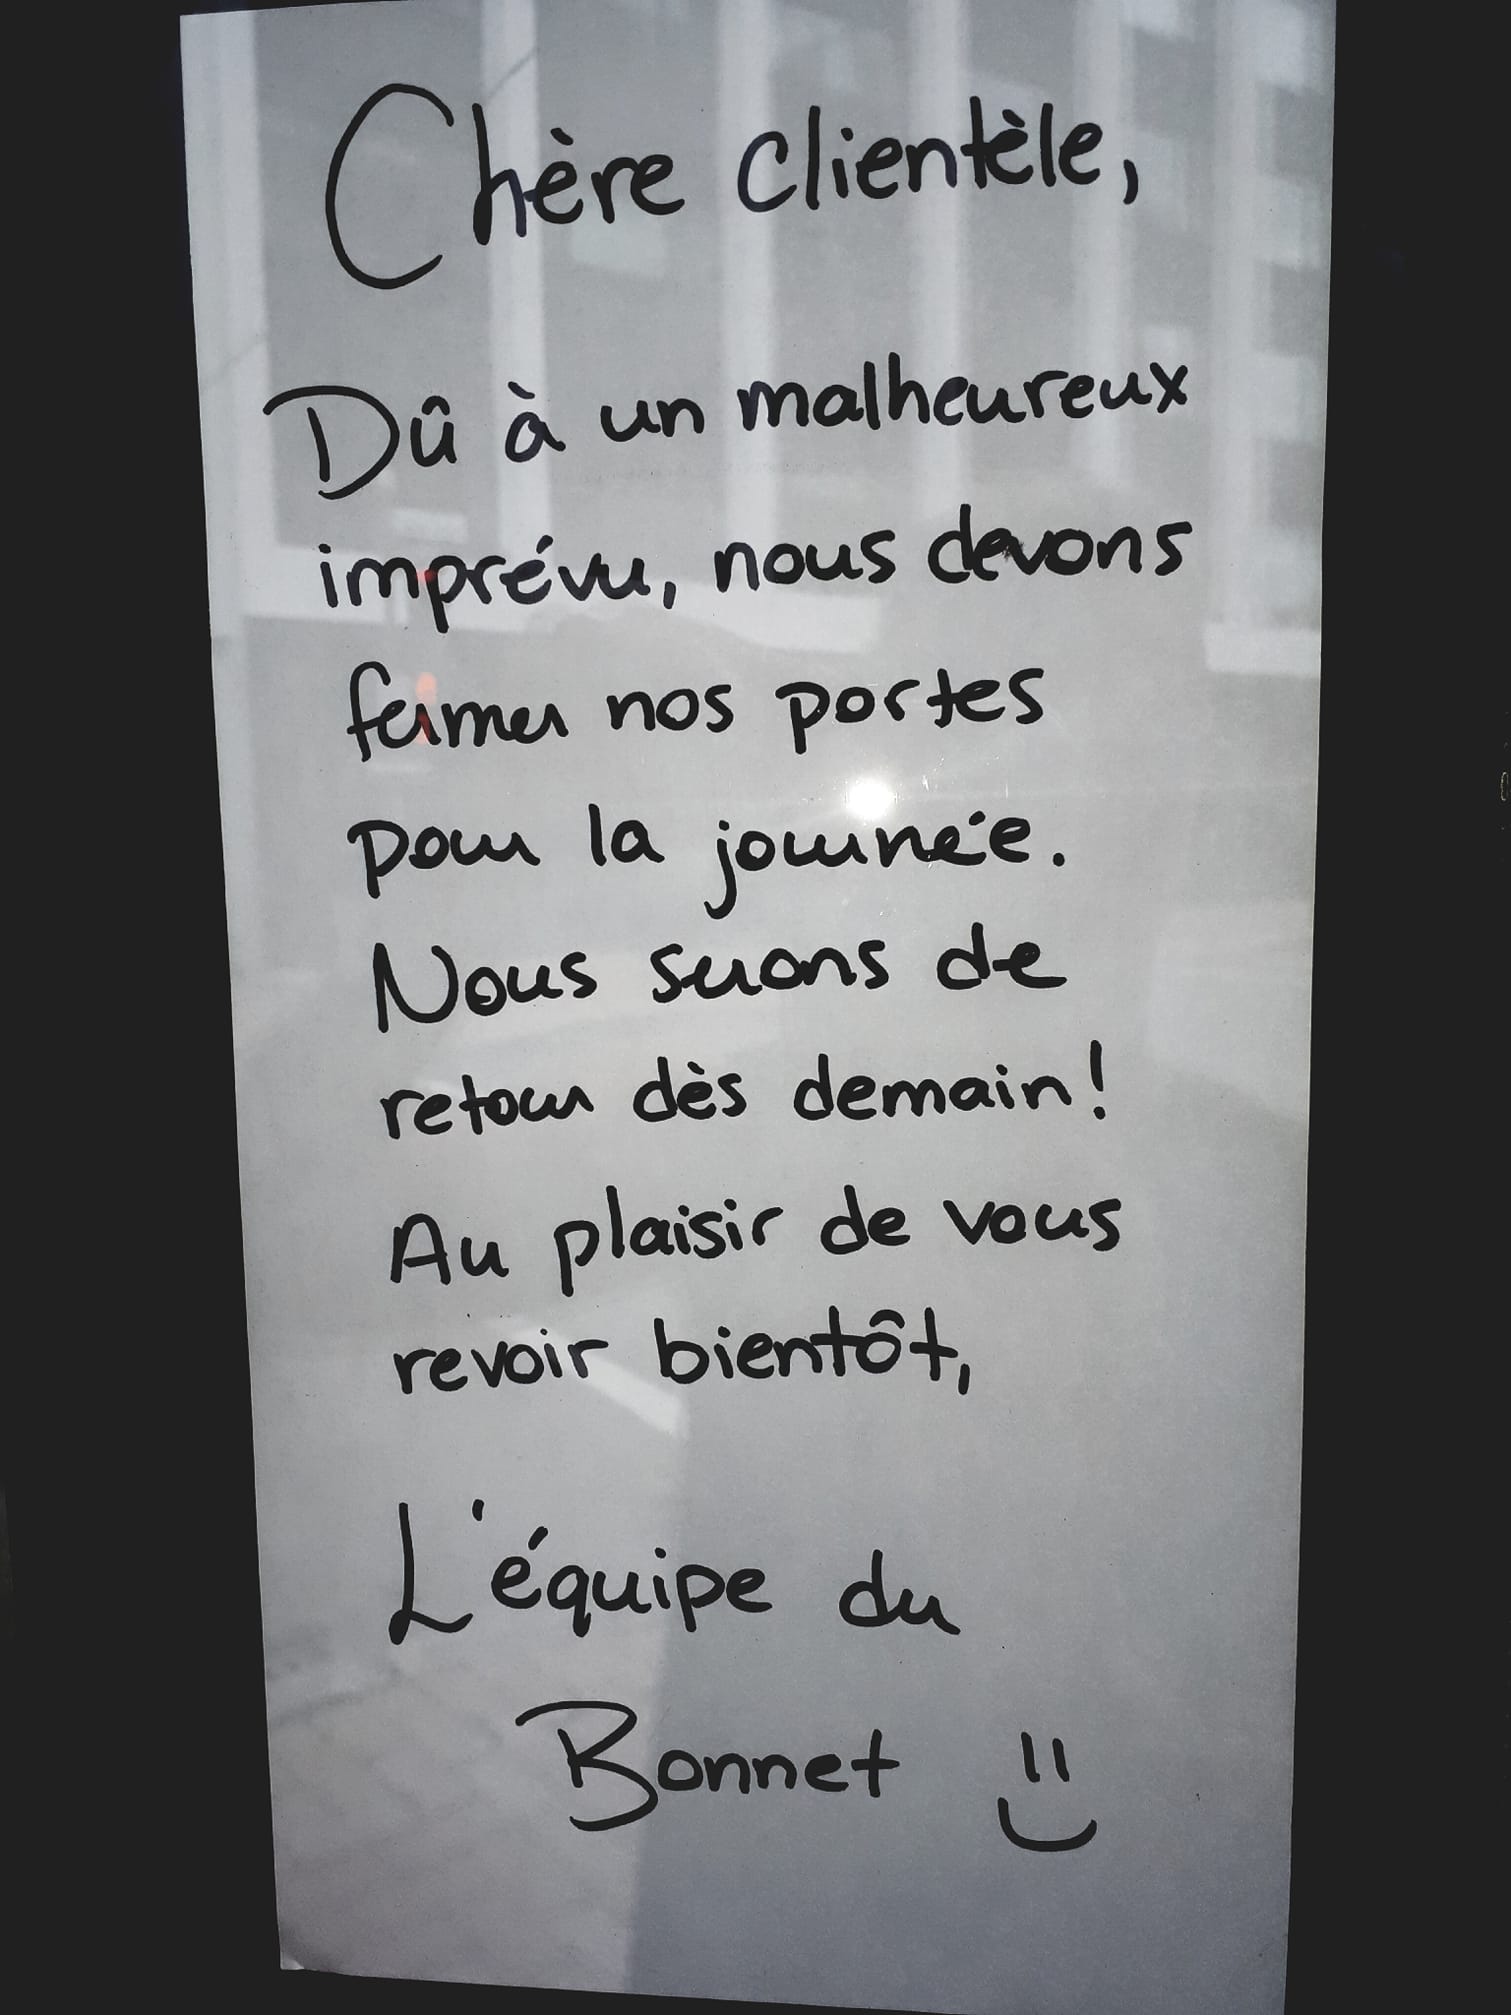 Chère clientèle,
Dû à un malheureux
imprévu, nous devons
fermer nos portes
pour la journée.
Nous serons de
retour dès demain!
Au plaisir de vous
revoir bientôt,
L'équipe du
Bonnet